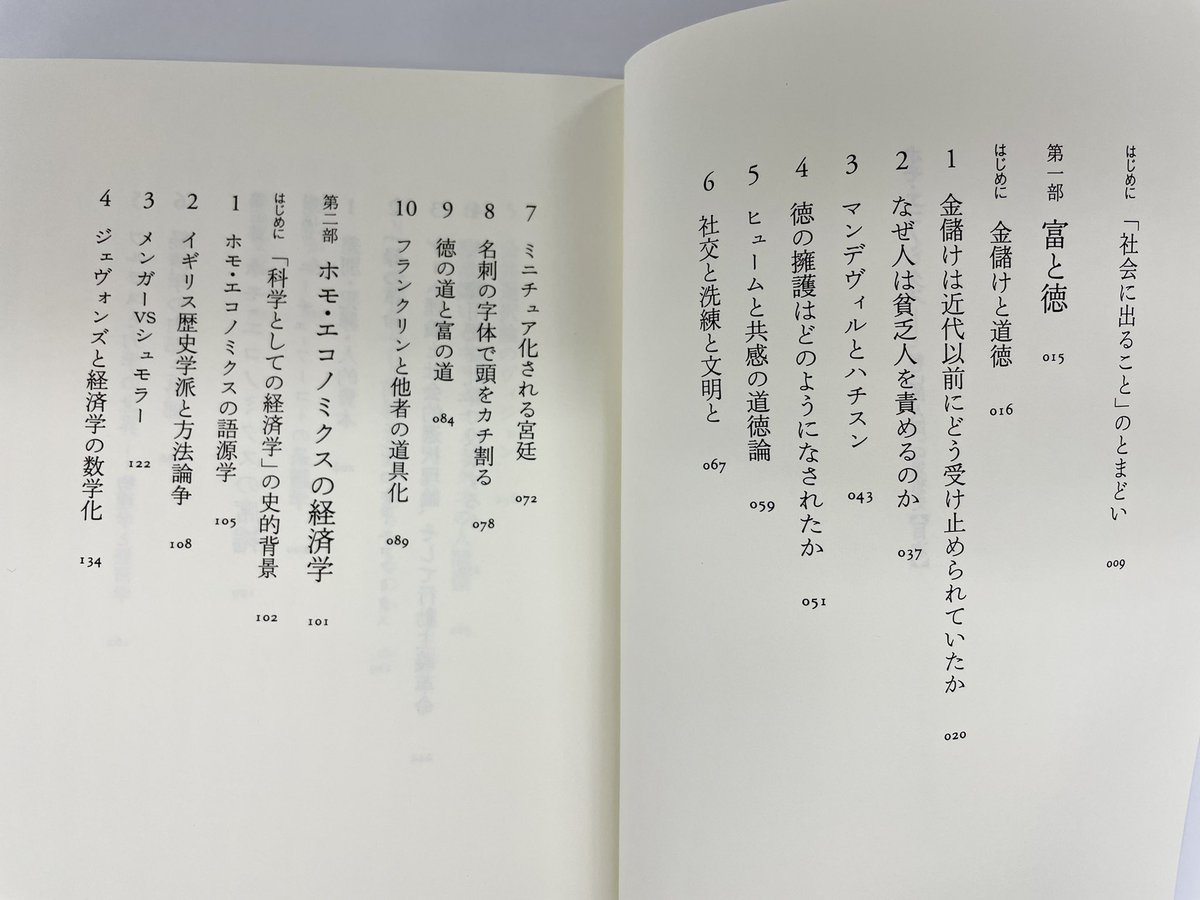 はじめに 「社会に出ること」のとまどい 009
第一部 富と徳 015
はじめに 金儲けと道徳 016
1 金儲けは近代以前にどう受け止められていたか 020
2 なぜ人は貧乏人を責めるのか 037
3 マンデヴィルとハチスン 043
4 徳の擁護はどのようになされたか 051
5 ヒュームと共感の道徳論 059
6 社交と洗練と文明と 067
7 ミニチュア化される宮廷 072
8 名刺の字体で頭をカチ割る 078
9 徳の道と富の道 084
10 フランクリンと他者の道具化 089
第二部 ホモ・エコノミクスの経済学 101
はじめに 「科学としての経済学」の史的背景 102
1 ホモ・エコノミクスの語源学 105
2 イギリス歴史学派と方法論争 108
3 メンガーVSシュモラー 122
4 ジェヴォンズと経済学の数学化 134